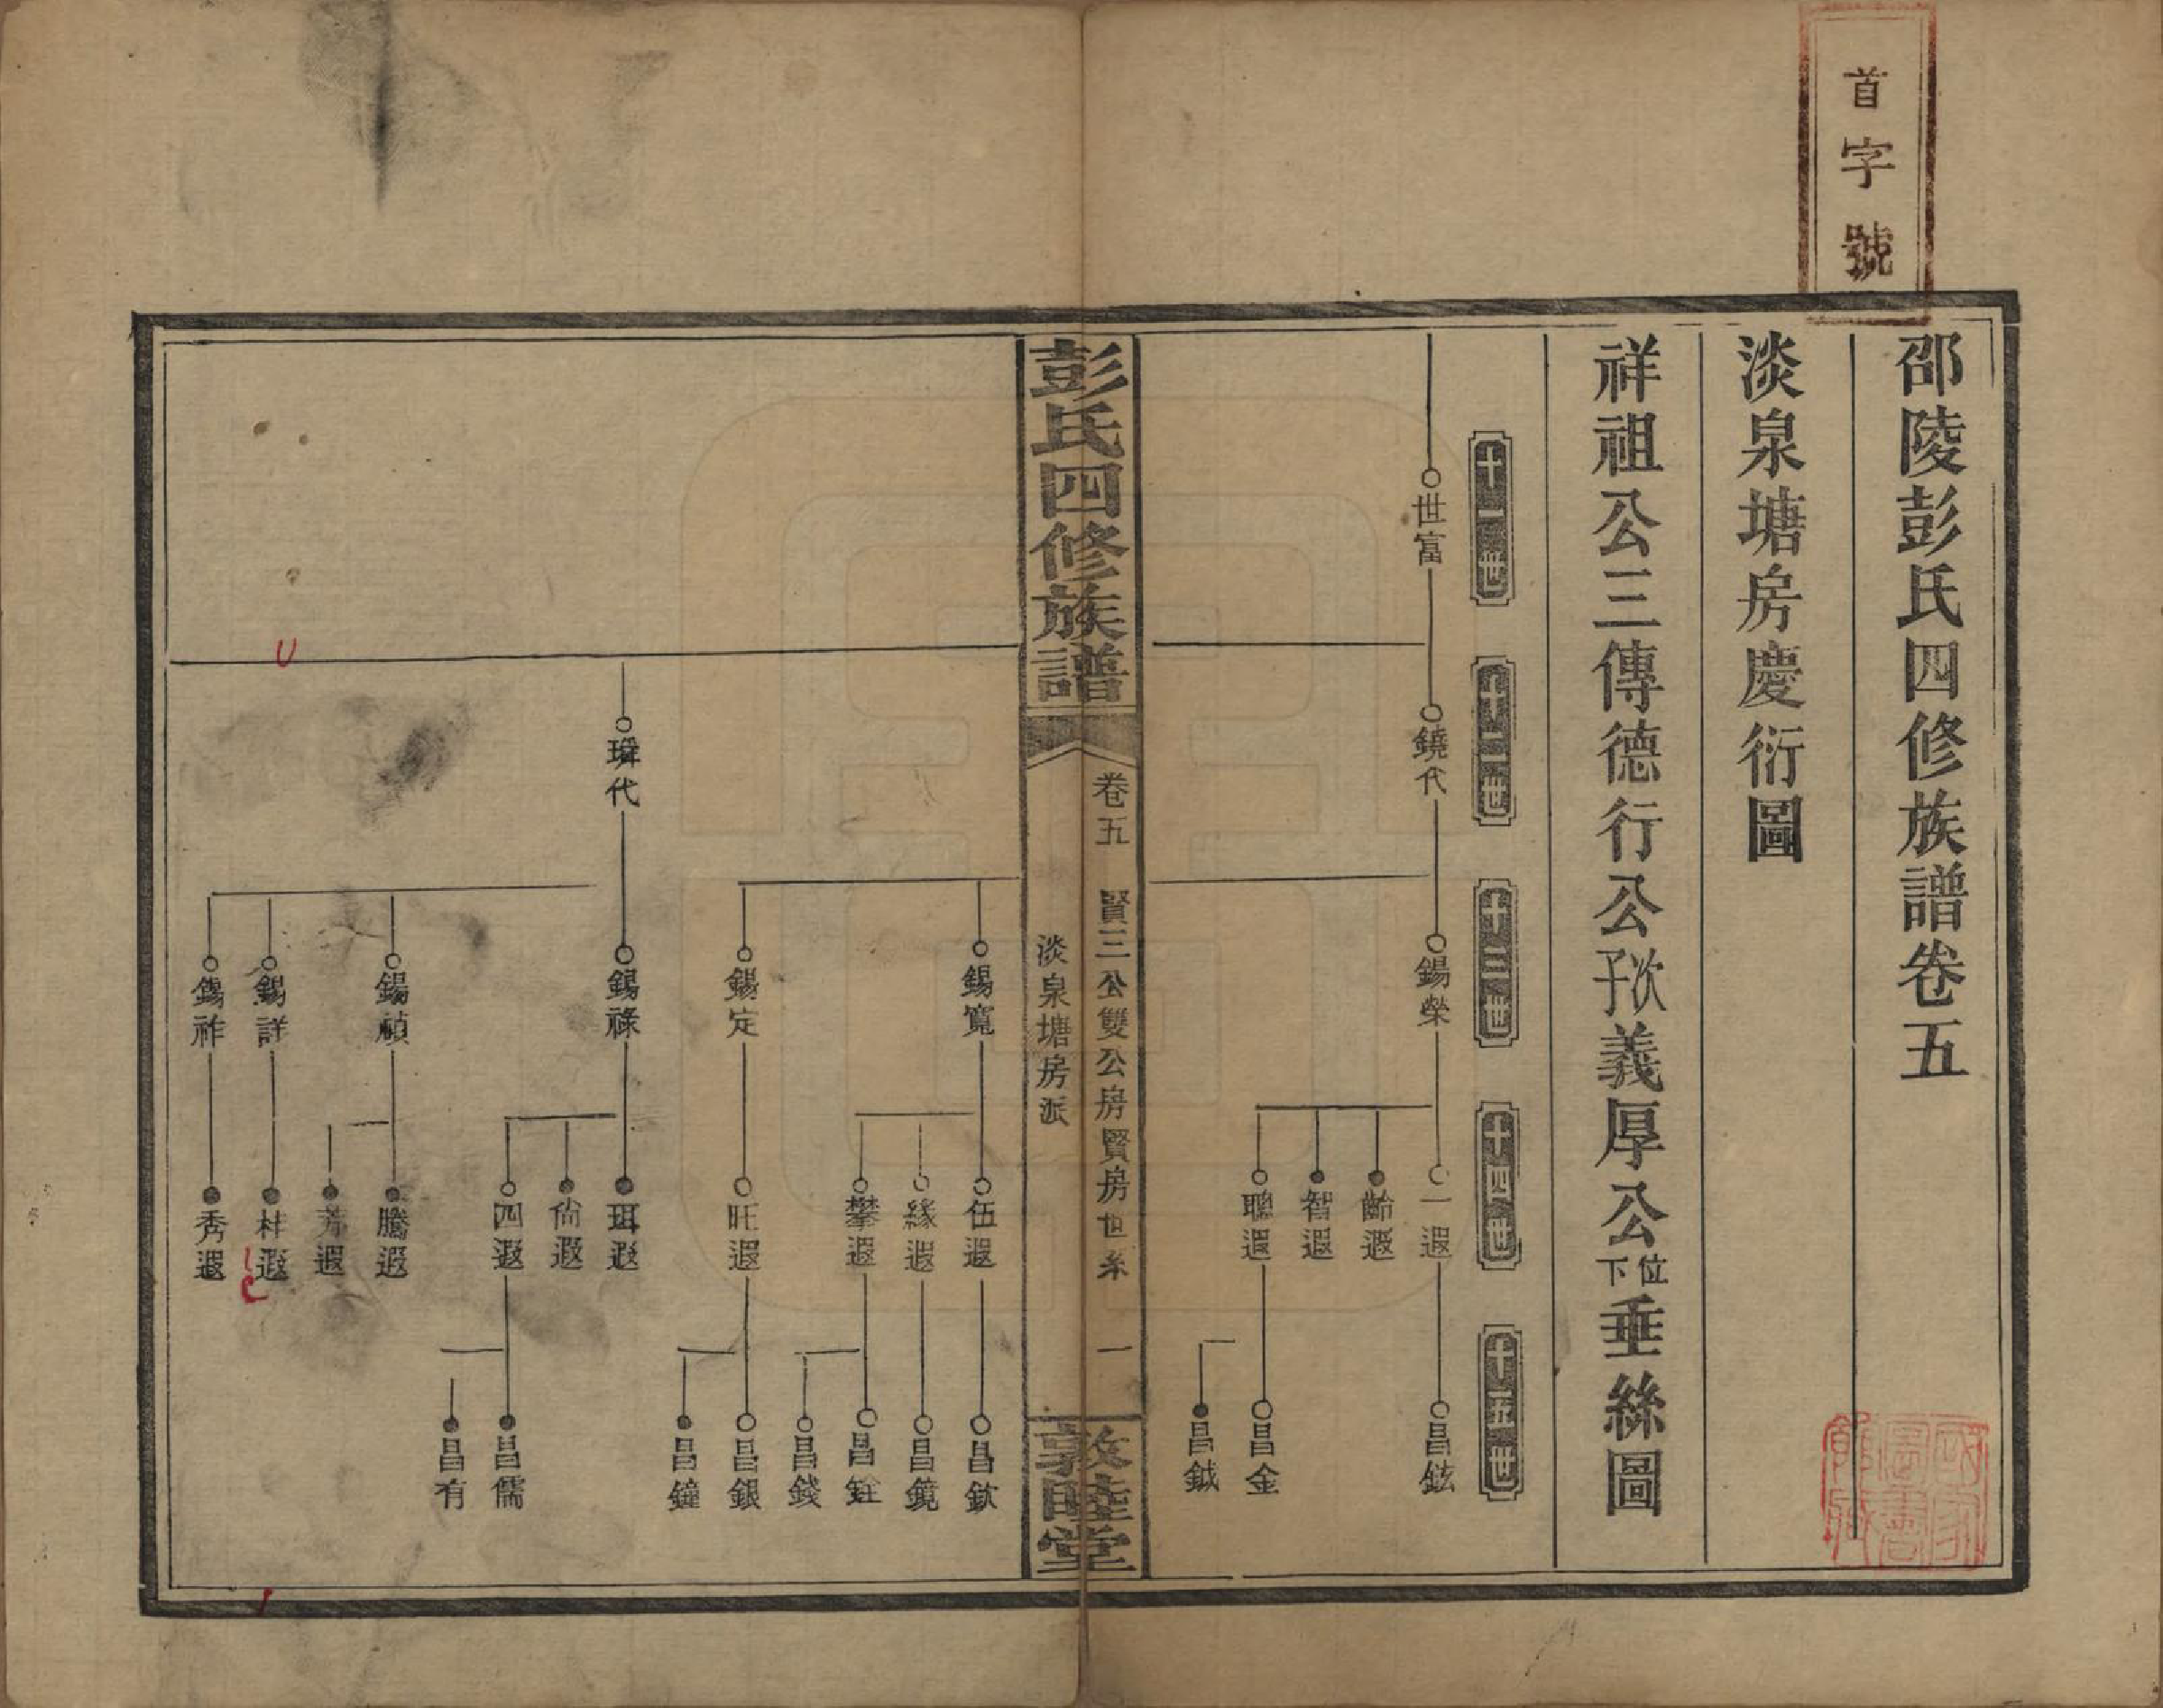 首字號
邵陵彭氏四修族譜卷五
淡泉塘房慶衍圖
祥祖公三傳德行公次子義厚公位下垂絲圖
十一世
十二世
十三世
十四世
十五世
世富
鐃代
錫榮
一遐
昌鉉
齡遐
智遐
聰遐
昌金
昌鉞
彭氏四修族譜
卷五
賢三公雙公房賢房世系
一
淡泉塘房派
敦睦堂
錫寬
伍遐
昌欽
緣遐
昌鏡
攀遐
昌銓
昌錢
錫定
旺遐
昌銀
昌鐘
璘代
錫祿
珥遐
尙遐
四遐
昌儒
昌有
錫禎
騰遐
芳遐
錫詳
桂遐
錫祚
秀遐
國家圖書館藏